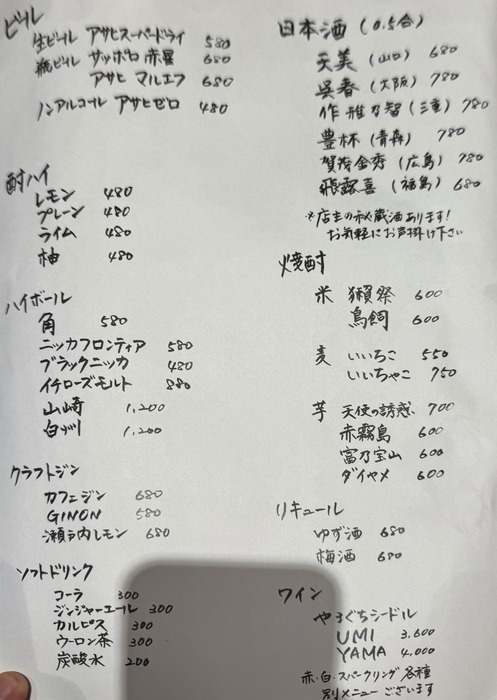 ビール
生ビール アサヒスーパードライ 580
瓶ビール サッポロ 赤星 680
アサヒ マルエフ 680
ノンアルコール アサヒゼロ 480
酎ハイ
レモン 480
プレーン 480
ライム 480
柚 480
ハイボール
角 580
ニッカフロンティア 580
ブラックニッカ 480
イチローズモルト 880
山崎 1,200
白州 1,200
クラフトジン
カフェジン 680
GINON 580
瀬戸内レモン 680
ソフトドリンク
コーラ 300
ジンジャーエール 300
カルピス 300
ウーロン茶 300
炭酸水 200
日本酒 (0.5合)
天美 (山口) 680
呉春 (大阪) 780
作 雅乃智 (三重) 780
豊杯 (青森) 780
賀茂金秀 (広島) 780
飛露喜 (福島) 680
※店主の秘蔵酒あります!
お気軽にお声掛け下さい
焼酎
米 獺祭 600
鳥飼 600
麦 いいちこ 550
いいちゃこ 750
芋 天使の誘惑 700
赤霧島 600
富乃宝山 600
ダイヤメ 600
リキュール
ゆず酒 680
梅酒 680
ワイン
やまぐちシードル
UMI 3,600
YAMA 4,000
赤・白・スパークリング 各種
別メニューございます